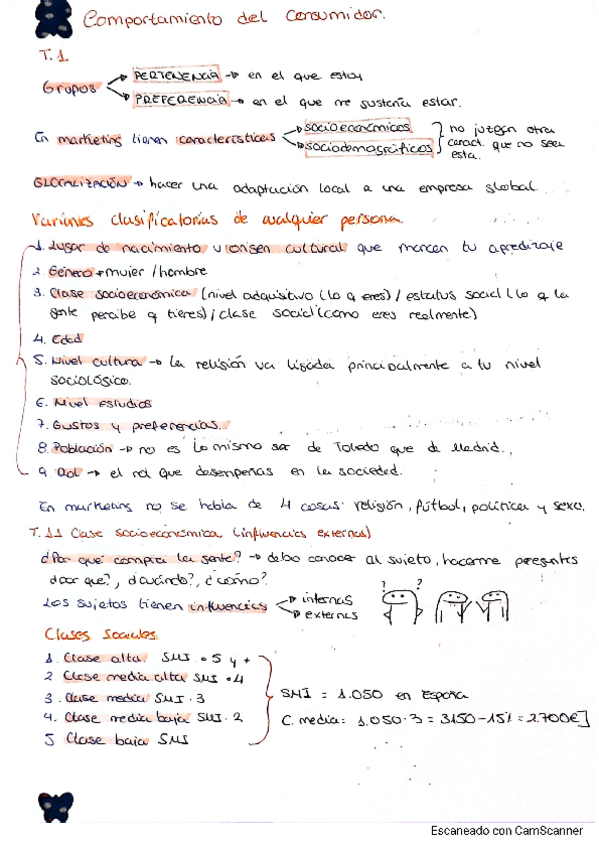 Comportamiento del consumidor.
T.1.
Grupos → PERTENENCIA → en el que estoy
→ PREFERENCIA → en el que me gustaría estar.
En marketing tienen características → socioeconómicos → sociodemográficos } no juzgan otra caract. que no sea esta.
GLOCALIZACIÓN → hacer una adaptación local a una empresa global.
Variables clasificatorias de cualquier persona.
1. Lugar de nacimiento u origen cultural que marcan tu aprendizaje
2. Género → mujer / hombre
3. Clase socioeconómica (nivel adquisitivo (lo q eres) / estatus social (lo q la
gente percibe q tieres) / clase social (como eres realmente)
4. Edad
5. Nivel cultura → la religión va ligada principalmente a tu nivel
sociológico.
6. Nivel estudios
7. Gustos y preferencias.
8. Población → no es lo mismo ser de Toledo que de Madrid.
9. Rol → el rol que desempeñas en la sociedad.
En marketing no se habla de 4 cosas: religión, fútbol, política y sexo.
T.1.1 Clase socioeconómica (influencias externas)
¿Por qué compra la gente? → debo conocer al sujeto, hacerme preguntas
¿por que?, ¿cuándo?, ¿cómo?
Los sujetos tienen influencias → internas
→ externas
? ?
Clases Sociales
1. Clase alta SMI · 5 y +
2 Clase media alta SMI · 4
3. Clase media SMI · 3
4. Clase media baja SMI · 2
5 Clase baja SMI
SMI = 1.050 en España
C. media: 1.050 · 3 = 3150 - 15% = 2.700€]
Escaneado con CamScanner